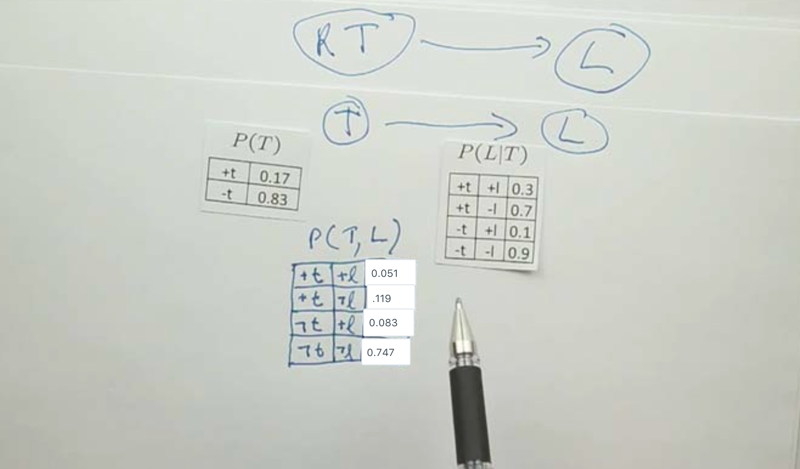 R T L
T L
P(T)
+t 0.17
-t 0.83
P(L|T)
+t +l 0.3
+t -l 0.7
-t +l 0.1
-t -l 0.9
P(T, L)
+t +l 0.051
+t ¬l .119
¬t +l 0.083
¬t ¬l 0.747